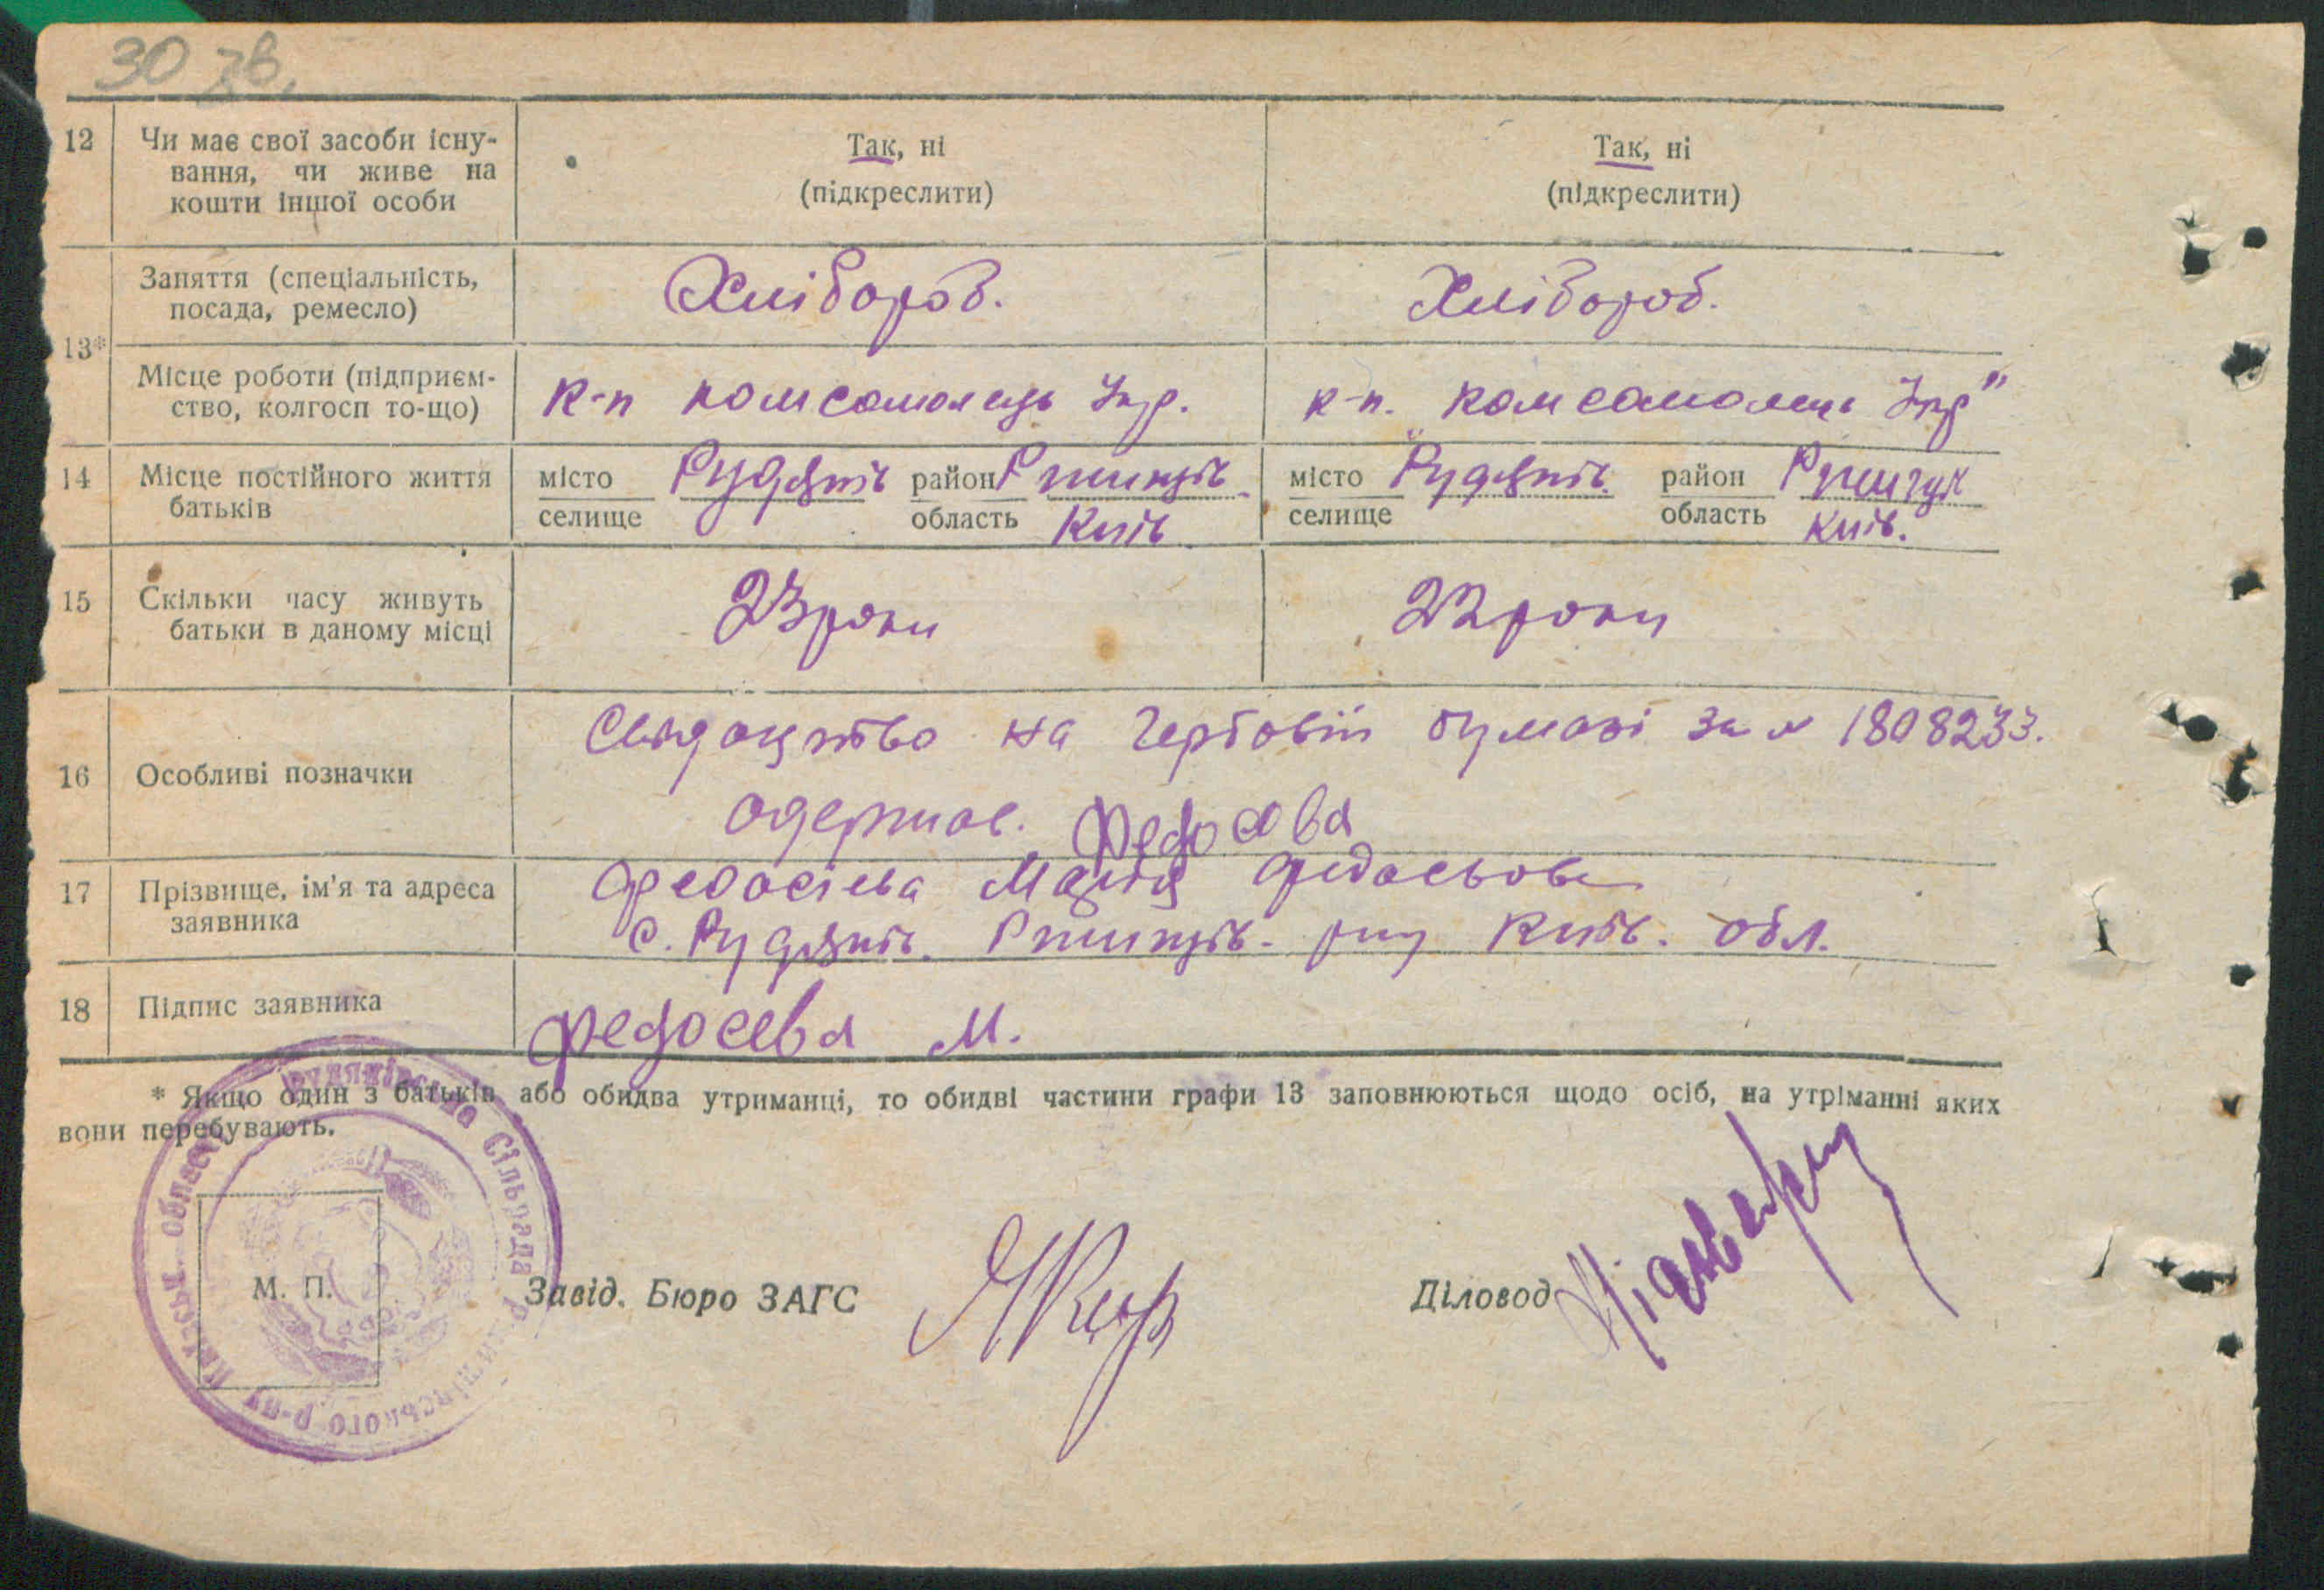 30 зв.
12 Чи має свої засоби існу- Так, ні Так, ні
вання, чи живе на (підкреслити) (підкреслити)
кошти іншої особи
13* Заняття (спеціальність, Хлібороб. Хлібороб.
посада, ремесло)
Місце роботи (підприєм- к-п комсомолець Укр. к-п. "комсомолець Укр"
ство, колгосп то-що)
14 Місце постійного життя місто Рудяків район Ржищів. місто Рудяків. район Ржищів
батьків селище область Київ селище область Київ.
15 Скільки часу живуть 23 роки 22 роки
батьки в даному місці
16 Особливі позначки Свідоцтво на гербовій бумазі за № 1808233.
одержав. Федосєва
17 Прізвище, ім'я та адреса Федосієва Марія Федосьовн
заявника с. Рудяків. Ржищів. р-ну Київ. обл.
18 Підпис заявника Федосєва М.
* Якщо один з батьків або обидва утриманці, то обидві частини графи 13 заповнюються щодо осіб, на утріманні яких
вони перебувають.
Рудяківська Сільрада Ржищівського р-ну Київськ. Області
М. П. Завід. Бюро ЗАГС Діловод